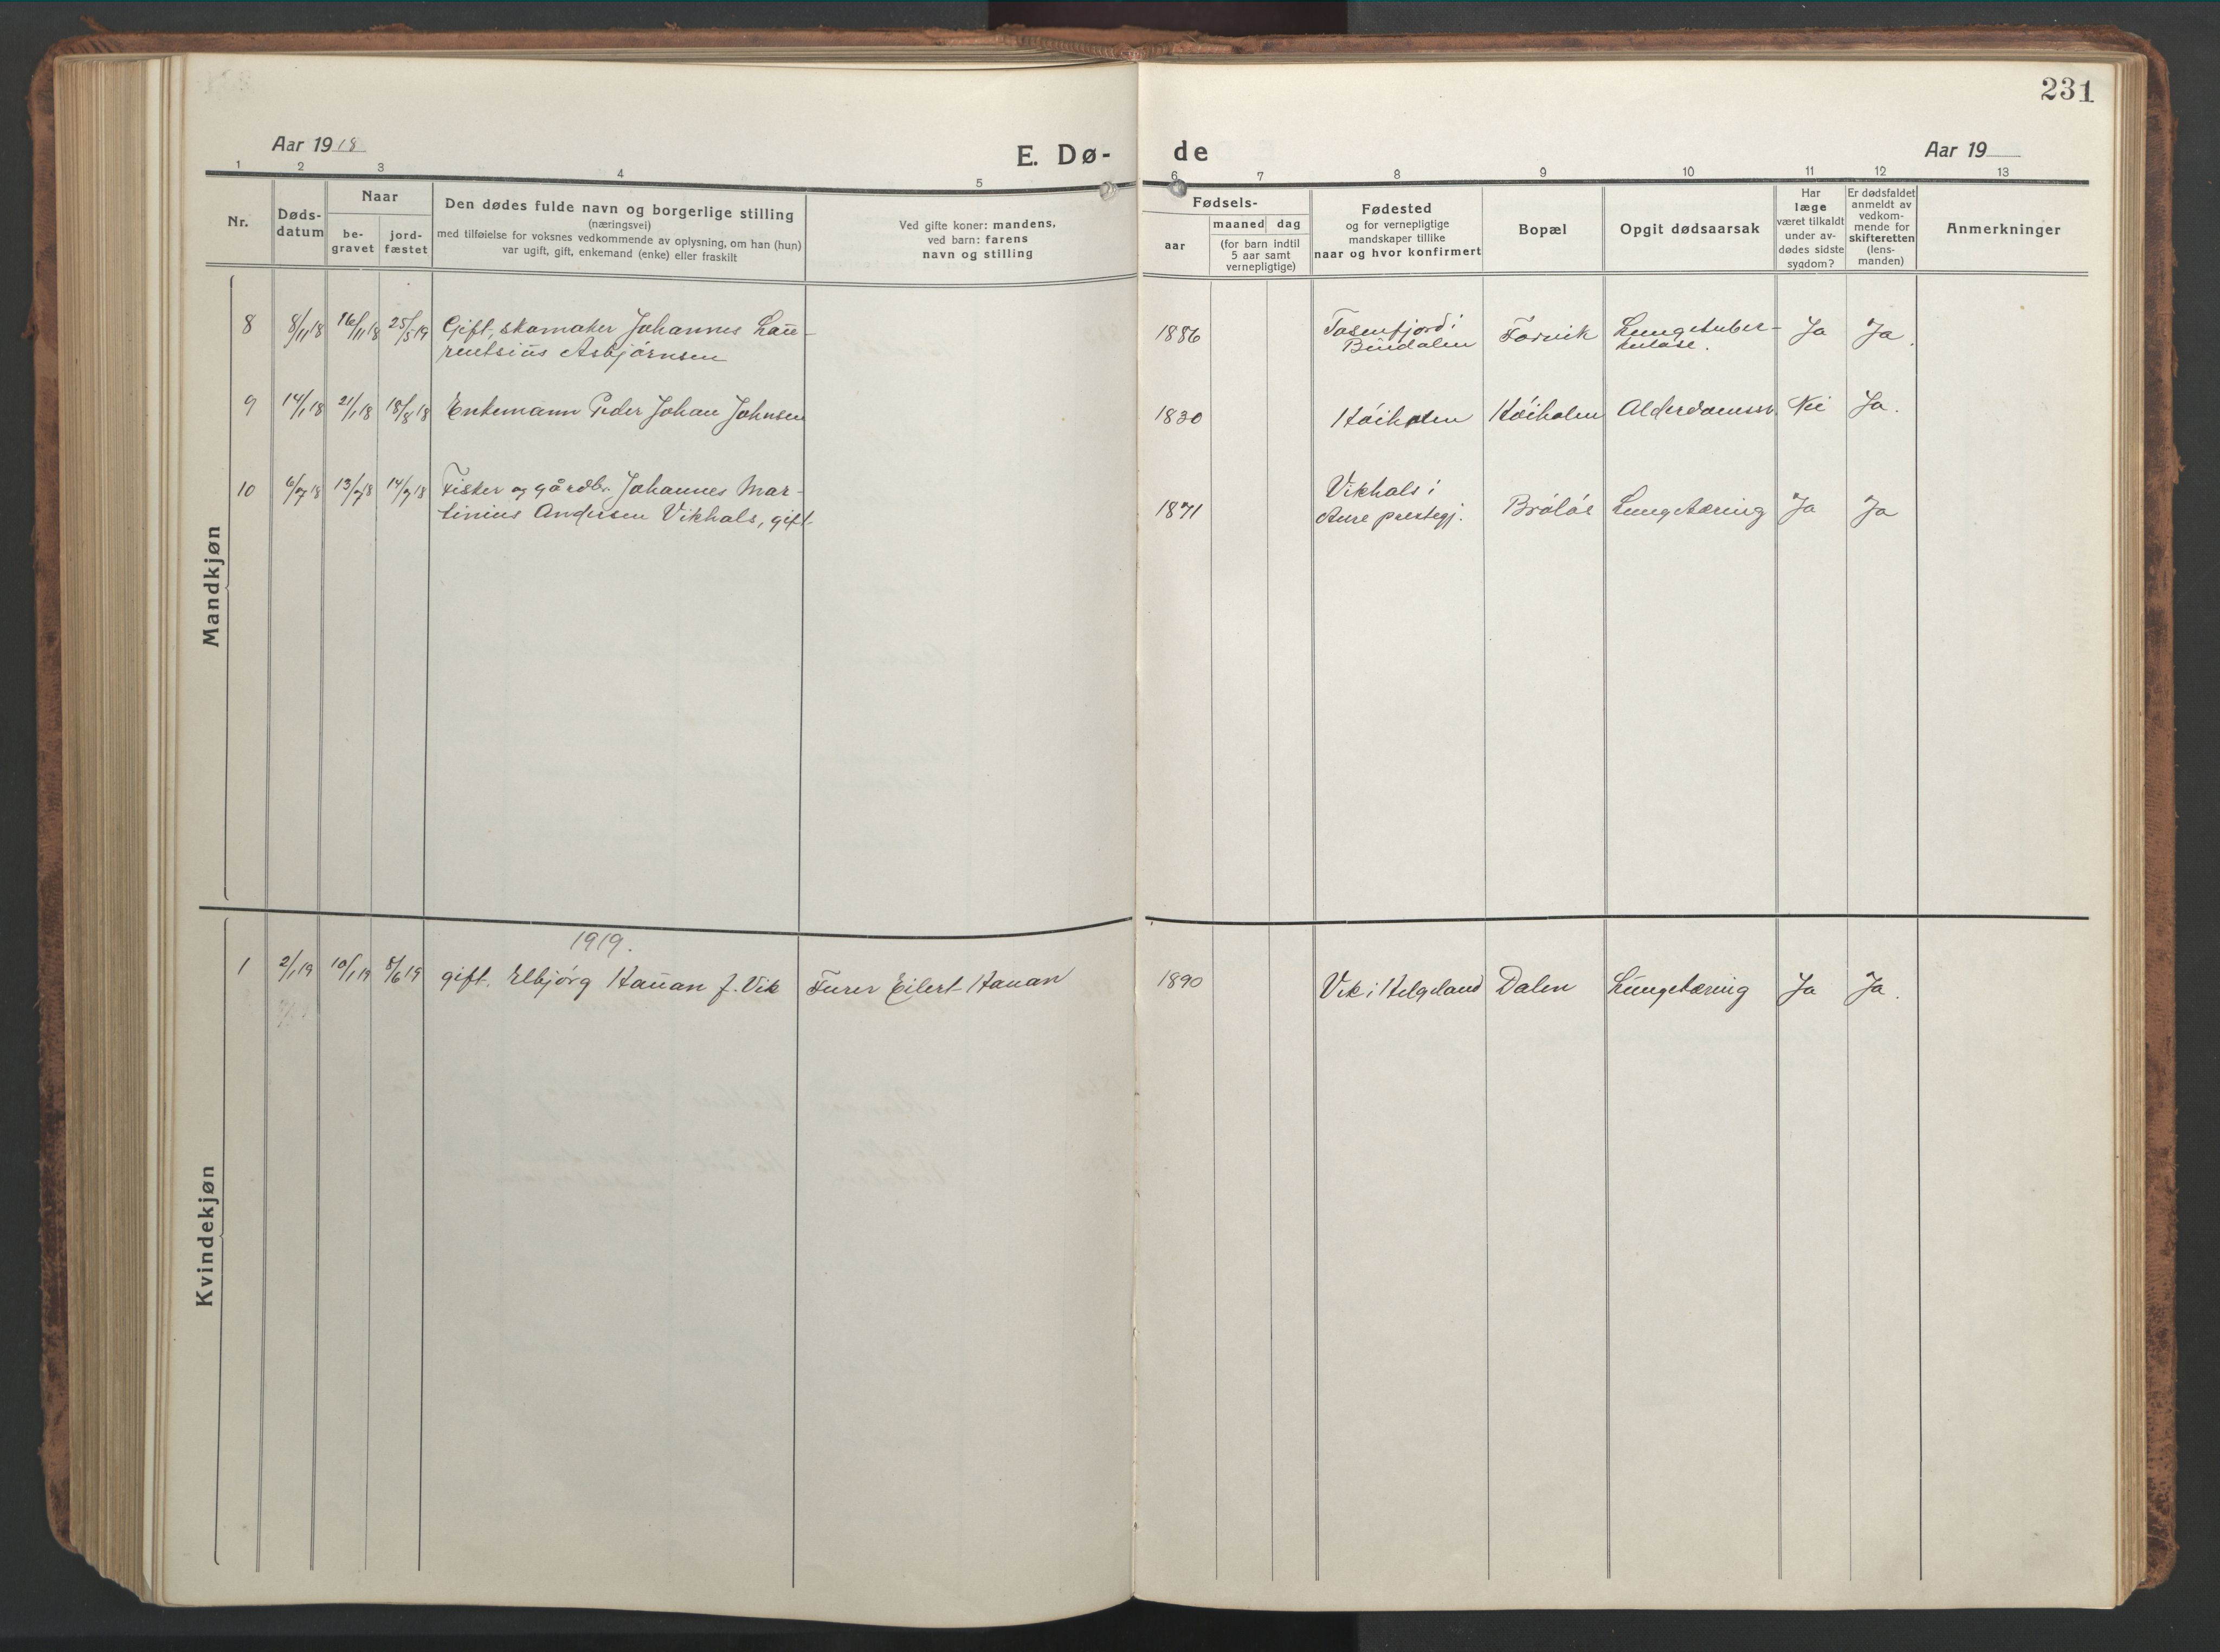 231
Aar 1918
E. Dø-
de
Aar 19
1 2 3 4 5 6 7 8 9 10 11 12 13
Nr.
Døds-
datum
Naar
be-
gravet
jord-
fæstet
Den dødes fulde navn og borgerlige stilling
(næringsvei)
med tilføielse for voksnes vedkommende av oplysning, om han (hun)
var ugift, gift, enkemand (enke) eller fraskilt
Ved gifte koner: mandens,
ved barn: farens
navn og stilling
Fødsels-
aar
maaned dag
(for barn indtil
5 aar samt
vernepligtige)
Fødested
og for vernepligtige
mandskaper tillike
naar og hvor konfirmert
Bopæl
Opgit dødsaarsak
Har
læge
været tilkaldt
under av-
dødes sidste
sygdom?
Er dødsfaldet
anmeldt av
vedkom-
mende for
skifteretten
(lens-
manden)
Anmerkninger
Mandkjøn
8 8/11 18 16/11 18 25/5 19 Gift, skomaker Johannes Lau- 1886 Tosenfjord i Forvik Lungetuber- Ja Ja.
rentsius Asbjørnsen Bindalen kulose.
9 14/1 18 21/1 18 18/8 18 Enkemann Peder Johan Johnsen 1830 Høiholm Høiholm Alderdomssv. Nei Ja.
10 6/7 18 13/7 18 14/7 18 Fisker og gårdbr. Johannes Mar- 1871 Vikhals i Brøløs Lungetæring Ja Ja
tinius Andersen Vikhals, gift. Aure prestegj.
Kvindekjøn
1919.
1 2/1 19 10/1 19 8/6 19 gift. Elbjørg Hauan f. Vik Furer Eilert Hauan 1890 Vik i Helgeland Dalen Lungetæring Ja Ja.